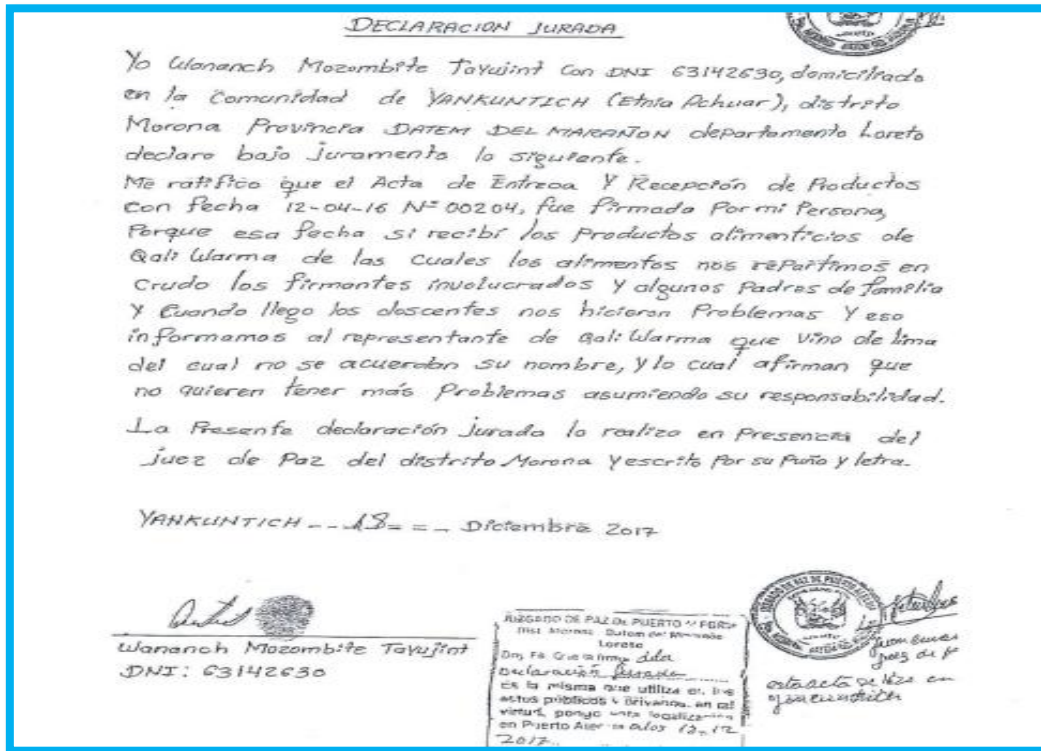 DECLARACION JURADA
Yo Wananch Mozombite Tayujint Con DNI 63142630, domiciliado
en la Comunidad de YANKUNTICH (Etnia Achuar), distrito
Morona Provincia DATEM DEL MARAÑON departamento Loreto
declaro bajo juramento lo siguiente.
Me ratifico que el Acta de Entrega Y Recepción de Productos
con fecha 12-04-16 Nº 00204, fue firmada Por mi Persona,
Porque esa fecha si recibí los Productos alimenticios de
Qali Warma de las cuales los alimentos nos repartimos en
crudo los firmantes involucrados y algunos Padres de familia
Y cuando llego los doscentes nos hicieron Problemas Y eso
informamos al representante de Qali Warma que vino de lima
del cual no se acuerdan su nombre, y lo cual afirman que
no quieren tener más Problemas asumiendo su responsabilidad.
La Presente declaración jurada lo realizo en Presencia del
juez de Paz del distrito Morona y escrito Por su Puño y letra.
YANKUNTICH -- 18 = = - Diciembre 2017
Wananch Mozombite Tayujint
DNI: 63142630
JUZGADO DE PAZ DE PUERTO
Loreto
Doy Fé Que la firma dela
Declaración Jurada
Es la misma que utiliza en los
actos públicos y Privados, en tal
virtud, pongo
en Puerto
2017
JUZGADO DE PAZ DE PUERTO
juez de P
esta acta se hizo en